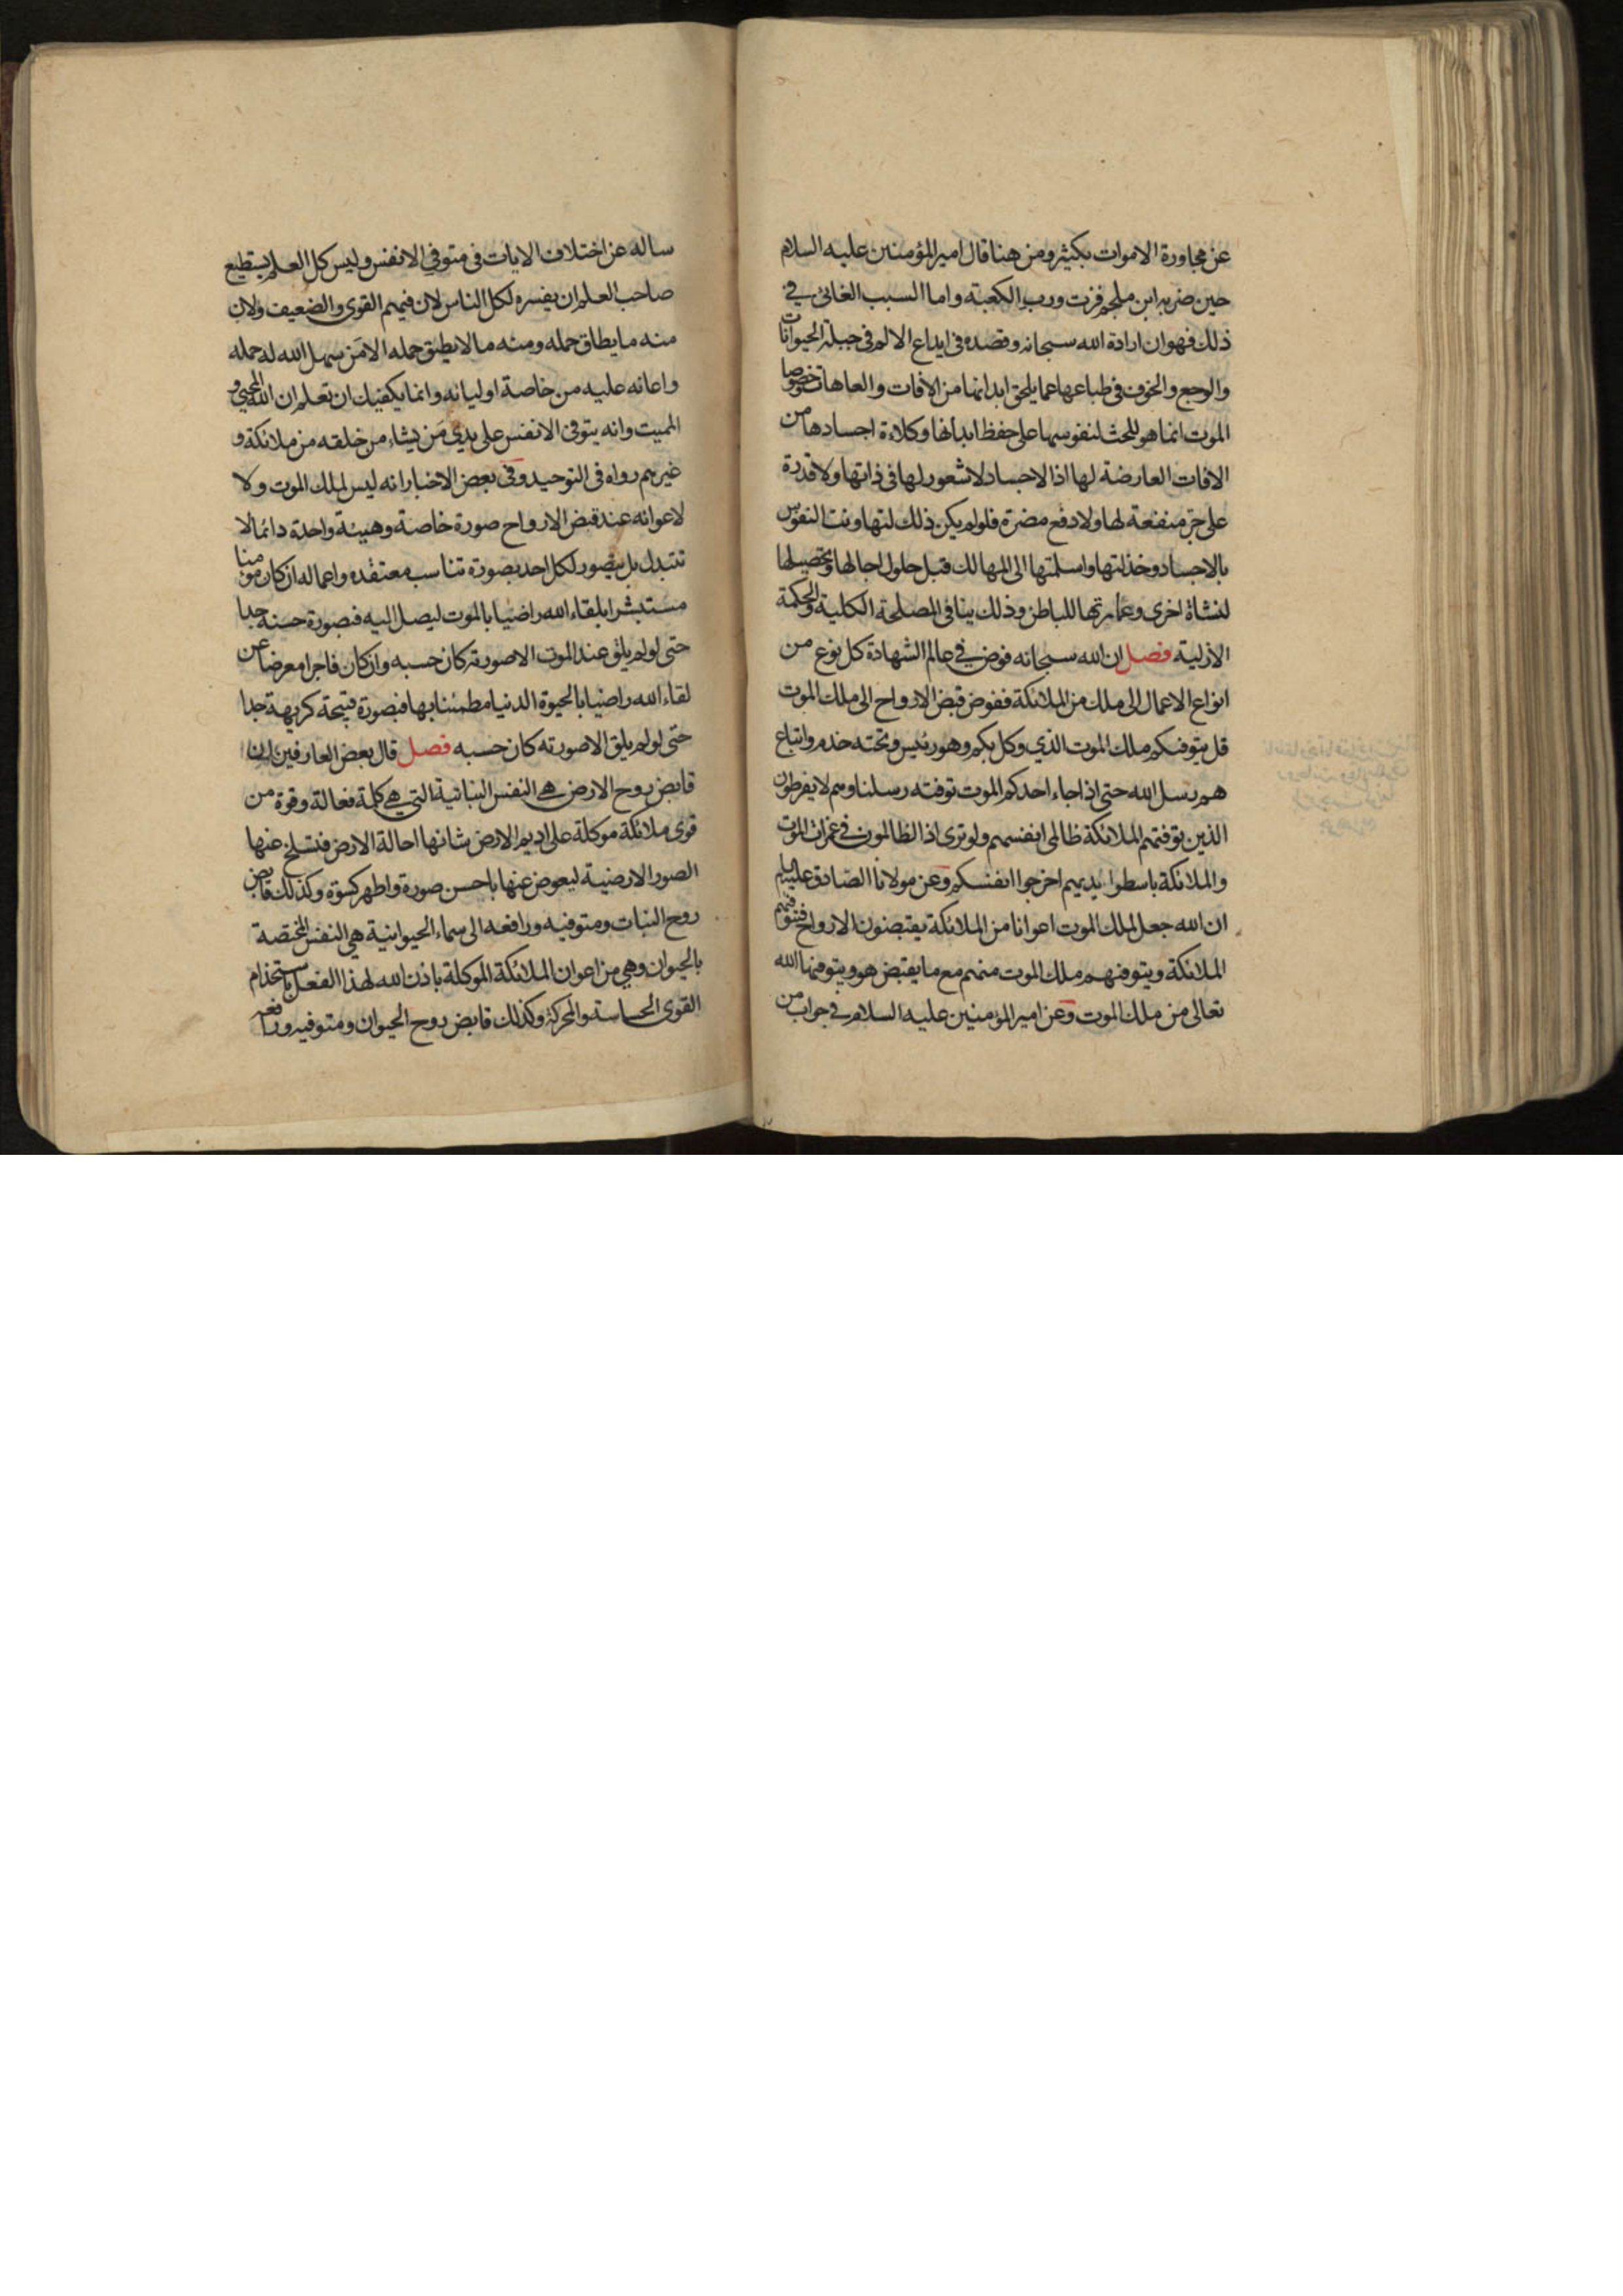 عن مجاورة الاموات بكثير ومن هنا قال امير المؤمنين عليه السلام
حين ضربه ابن ملجم فزت ورب الكعبة واما السبب الغائي في
ذلك فهو ان ارادة الله سبحانه وقصده في ايداع الالم في جبلة الحيوانات
والوجع والخوف في طباعها عما يلحق ابدانها من الافات والعاهات خصوصا
الموت انما هو للحث لنفوسها على حفظ ابدانها وكلاءة اجسادها من
الافات العارضة لها اذ الاجساد لا شعور لها في ذاتها ولا قدرة
على جر منفعة لها ولا دفع مضرة فلو لم يكن ذلك لتهاونت النفوس
بالاجساد وخذلتها واسلمتها الى المهالك قبل حلول اجالها وتحصيلها
لنشاة اخرى وعمارتها للباطن وذلك ينافي المصلحة الكلية والحكمة
الازلية فصل ان الله سبحانه فوض في عالم الشهادة كل نوع من
انواع الاعمال الى ملك من الملائكة ففوض قبض الارواح الى ملك الموت
قل يتوفيكم ملك الموت الذي وكل بكم وهو رئيس وتحته خدم واتباع
هم رسل الله حتى اذا جاء احدكم الموت توفته رسلنا وهم لا يفرطون
الذين توفتهم الملائكة ظالمي انفسهم ولو ترى اذ الظالمون في غمرات الموت
والملائكة باسطوا ايديهم اخرجوا انفسكم وعن مولانا الصادق عليه السلم
ان الله جعل لملك الموت اعوانا من الملائكة يقبضون الارواح فتتوفيهم
الملائكة ويتوفيهم ملك الموت منهم مع ما يقبض هو ويتوفيها الله
تعالى من ملك الموت وعن امير المؤمنين عليه السلام في جواب من
ساله عن اختلاف الايات في متوفي الانفس وليس كل العلم يستطيع
صاحب العلم ان يفسره لكل الناس لان فيهم القوي والضعيف ولان
منه ما يطاق حمله ومنه ما لا يطيق حمله الا من سهل الله له حمله
واعانه عليه من خاصة اوليائه وانما يكفيك ان تعلم ان الله المحيي و
المميت وانه يتوفى الانفس على يدي من يشاء من خلقه من ملائكة و
غيرهم رواه في التوحيد وفي بعض الاخبار انه ليس لملك الموت ولا
لاعوانه عند قبض الارواح صورة خاصة وهيئة واحدة دائما لا
تتبدل بل يتصور لكل احد بصورة تناسب معتقده واعماله ان كان مؤمنا
مستبشرا بلقاء الله راضيا بالموت ليصل اليه فبصورة حسنة جدا
حتى لو لم يلق عند الموت الا صورته كان حسبه وان كان فاجرا معرضا عن
لقاء الله راضيا بالحيوة الدنيا مطمئنا بها فبصورة قبيحة كريهة جدا
حتى لو لم يلق الا صورته كان حسبه فصل قال بعض العارفين ان
قابض روح الارض هي النفس النباتية التي هي كلمة فعالة وقوة من
قوى ملائكة موكلة على اديم الارض شانها احالة الارض فتسلخ عنها
الصور الارضية ليعوض عنها باحسن صورة واطهر كسوة وكذلك قابض
روح النبات ومتوفيه ورافعه الى سماء الحيوانية هي النفس المختصة
بالحيوان وهي من اعوان الملائكة الموكلة باذن الله لهذا الفعل باستخدام
القوى الحساسة والمحركة وكذلك قابض روح الحيوان ومتوفيه ورافعه